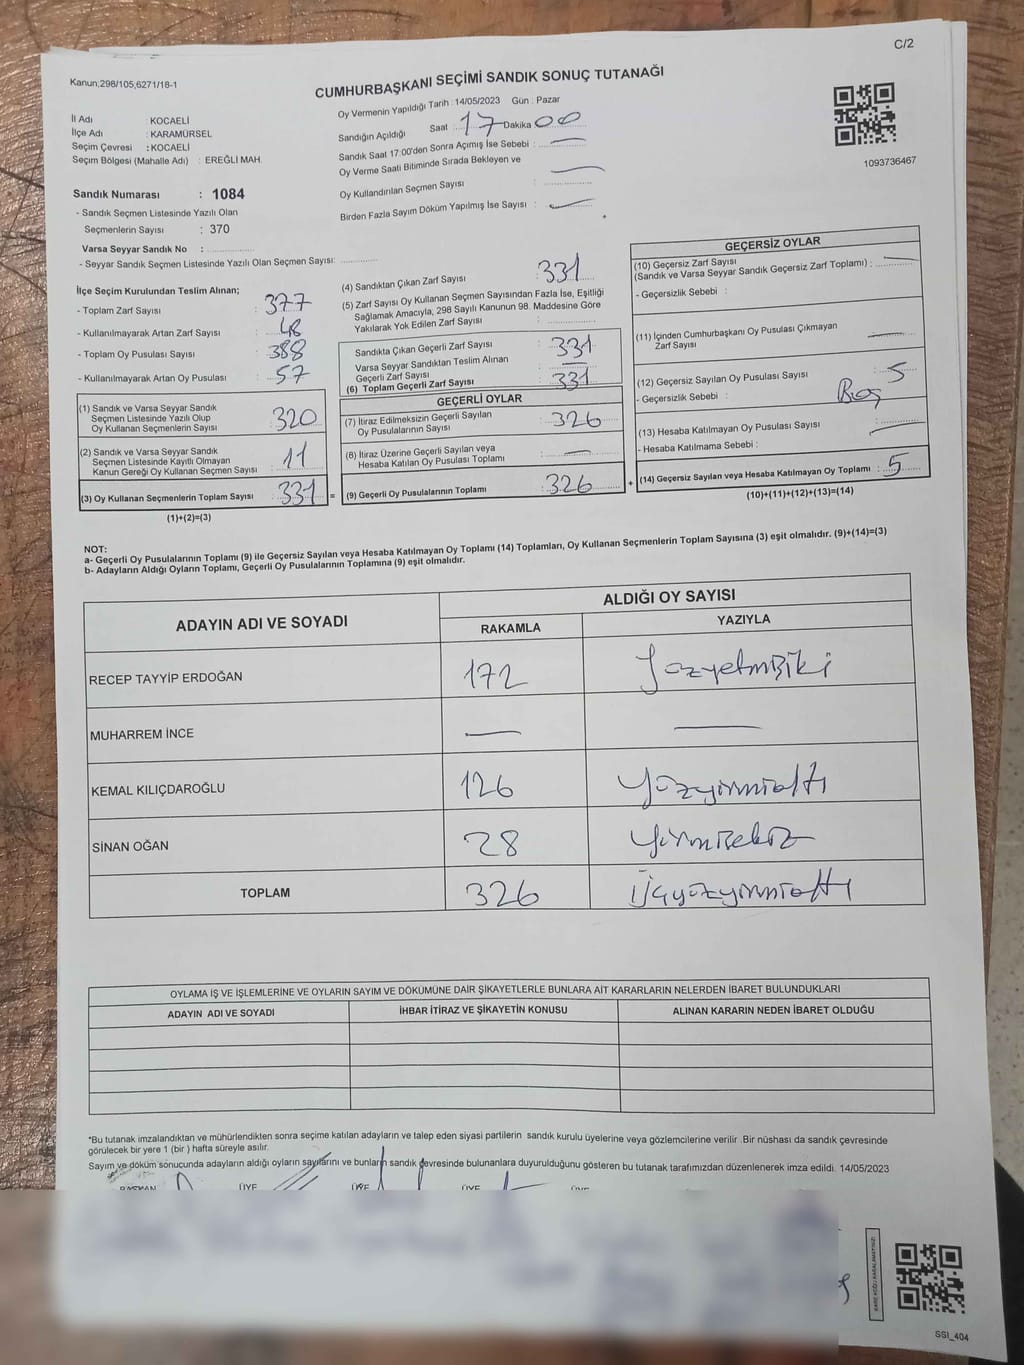 C/2
Kanun;298/105,6271/18-1
CUMHURBAŞKANI SEÇİMİ SANDIK SONUÇ TUTANAĞI
İl Adı : KOCAELİ
İlçe Adı : KARAMÜRSEL
Seçim Çevresi : KOCAELİ
Seçim Bölgesi (Mahalle Adı) : EREĞLİ MAH.
Oy Vermenin Yapıldığı Tarih : 14/05/2023 Gün : Pazar
Sandığın Açıldığı Saat : 17 Dakika 00
Sandık Saat 17:00'den Sonra Açımış İse Sebebi : —
Oy Verme Saati Bitiminde Sırada Bekleyen ve
Oy Kullandırılan Seçmen Sayısı —
Birden Fazla Sayım Döküm Yapılmış İse Sayısı : —
1093736467
Sandık Numarası : 1084
- Sandık Seçmen Listesinde Yazılı Olan
Seçmenlerin Sayısı : 370
Varsa Seyyar Sandık No :
- Seyyar Sandık Seçmen Listesinde Yazılı Olan Seçmen Sayısı:
İlçe Seçim Kurulundan Teslim Alınan;
- Toplam Zarf Sayısı : 377
- Kullanılmayarak Artan Zarf Sayısı : 48
- Toplam Oy Pusulası Sayısı : 388
- Kullanılmayarak Artan Oy Pusulası : 57
(1) Sandık ve Varsa Seyyar Sandık
Seçmen Listesinde Yazılı Olup
Oy Kullanan Seçmenlerin Sayısı : 320
(2) Sandık ve Varsa Seyyar Sandık
Seçmen Listesinde Kayıtlı Olmayan
Kanun Gereği Oy Kullanan Seçmen Sayısı : 11
(3) Oy Kullanan Seçmenlerin Toplam Sayısı : 331 =
(1)+(2)=(3)
(4) Sandıktan Çıkan Zarf Sayısı : 331
(5) Zarf Sayısı Oy Kullanan Seçmen Sayısından Fazla İse, Eşitliği
Sağlamak Amacıyla, 298 Sayılı Kanunun 98. Maddesine Göre
Yakılarak Yok Edilen Zarf Sayısı :
Sandıkta Çıkan Geçerli Zarf Sayısı : 331
Varsa Seyyar Sandıktan Teslim Alınan
Geçerli Zarf Sayısı : —
(6) Toplam Geçerli Zarf Sayısı : 331
GEÇERLİ OYLAR
(7) İtiraz Edilmeksizin Geçerli Sayılan
Oy Pusulalarının Sayısı : 326
(8) İtiraz Üzerine Geçerli Sayılan veya
Hesaba Katılan Oy Pusulası Toplamı : —
(9) Geçerli Oy Pusulalarının Toplamı : 326 +
GEÇERSİZ OYLAR
(10) Geçersiz Zarf Sayısı
(Sandık ve Varsa Seyyar Sandık Geçersiz Zarf Toplamı) : —
- Geçersizlik Sebebi :
(11) İçinden Cumhurbaşkanı Oy Pusulası Çıkmayan
Zarf Sayısı : —
(12) Geçersiz Sayılan Oy Pusulası Sayısı : 5
- Geçersizlik Sebebi : Boş
(13) Hesaba Katılmayan Oy Pusulası Sayısı : —
- Hesaba Katılmama Sebebi :
(14) Geçersiz Sayılan veya Hesaba Katılmayan Oy Toplamı : 5
(10)+(11)+(12)+(13)=(14)
NOT:
a- Geçerli Oy Pusulalarının Toplamı (9) ile Geçersiz Sayılan veya Hesaba Katılmayan Oy Toplamı (14) Toplamları, Oy Kullanan Seçmenlerin Toplam Sayısına (3) eşit olmalıdır. (9)+(14)=(3)
b- Adayların Aldığı Oyların Toplamı, Geçerli Oy Pusulalarının Toplamına (9) eşit olmalıdır.
ADAYIN ADI VE SOYADI
ALDIĞI OY SAYISI
RAKAMLA YAZIYLA
RECEP TAYYİP ERDOĞAN 172 Yüzyetmişiki
MUHARREM İNCE — —
KEMAL KILIÇDAROĞLU 126 Yüzyirmialtı
SİNAN OĞAN 28 Yirmisekiz
TOPLAM 326 Üçyüzyirmialtı
OYLAMA İŞ VE İŞLEMLERİNE VE OYLARIN SAYIM VE DÖKÜMÜNE DAİR ŞİKAYETLERLE BUNLARA AİT KARARLARIN NELERDEN İBARET BULUNDUKLARI
ADAYIN ADI VE SOYADI İHBAR İTİRAZ VE ŞİKAYETİN KONUSU ALINAN KARARIN NEDEN İBARET OLDUĞU
*Bu tutanak imzalandıktan ve mühürlendikten sonra seçime katılan adayların ve talep eden siyasi partilerin sandık kurulu üyelerine veya gözlemcilerine verilir .Bir nüshası da sandık çevresinde
görülecek bir yere 1 (bir ) hafta süreyle asılır.
Sayım ve döküm sonucunda adayların aldığı oyların sayılarını ve bunların sandık çevresinde bulunanlara duyurulduğunu gösteren bu tutanak tarafımızdan düzenlenerek imza edildi. 14/05/2023
BAŞKAN ÜYE ÜYE ÜYE ÜYE
SSI_404